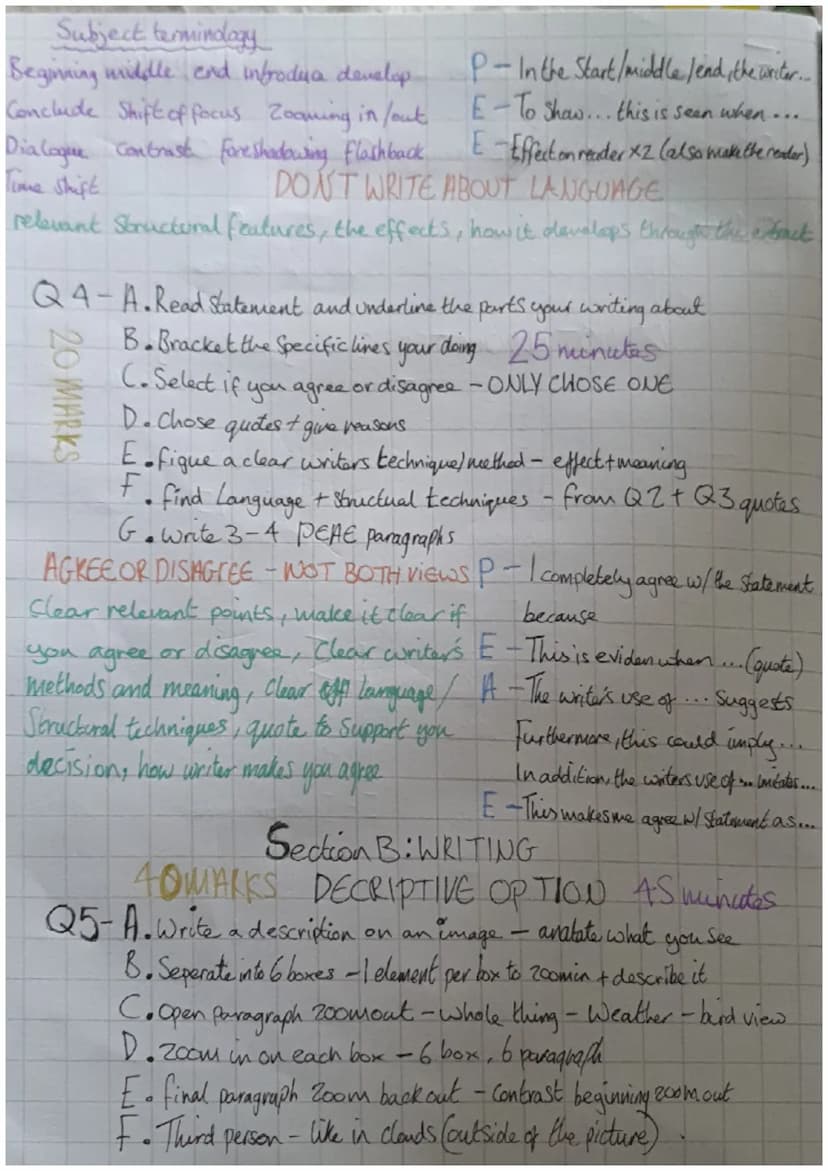 Subject terminology
Beginning middle end introduce develop
Conclude Shift of focus Zooming in/out
Dialogue contrast foreshadowing flashback
Time shift
P - In the Start/middle/end, the writer...
E - To Show... this is seen when...
E - Effect on reader x2 (also make the reader)
DON'T WRITE ABOUT LANGUAGE
relevant Structural features, the effects, how it develops through the extract
Q4 - A. Read Statement and underline the parts your writing about
B. Bracket the Specific lines your doing 25 minutes
20 MARKS
C. Select if you agree or disagree - ONLY CHOSE ONE
D. Chose quotes + give reasons
E. figue a clear writers technique/method - effect + meaning
F. find Language + Structual techniques - from Q2 + Q3 quotes
G. Write 3-4 PEAE paragraphs
AGREE OR DISAGREE - NOT BOTH VIEWS
Clear relevant points, make it clear if
you agree or disagree, Clear writer's
methods and meaning, Clear language/
Structural techniques, quote to Support you
decision, how writer makes you agree
P - I completely agree w/ the Statement
because
E - This is eviden when ... (quote)
A - The writer's use of ... Suggests
Furthermore, this could imply...
In addition, the writers use of ...
E - This makes me agree w/ Statement as...
Section B: WRITING
40 MARKS DECRIPTIVE OPTION 45 minutes
Q5 - A. Write a description on an image - anatate what you see
B. Seperate into 6 boxes - 1 element per box to zoom in + describe it
C. Open Paragraph zoom out - whole thing - Weather - bird view
D. zoom in on each box - 6 box, 6 paragraph
E. final paragraph Zoom back out - Contrast beginning zoom out
F. Third person - like in clouds (outside of the picture).